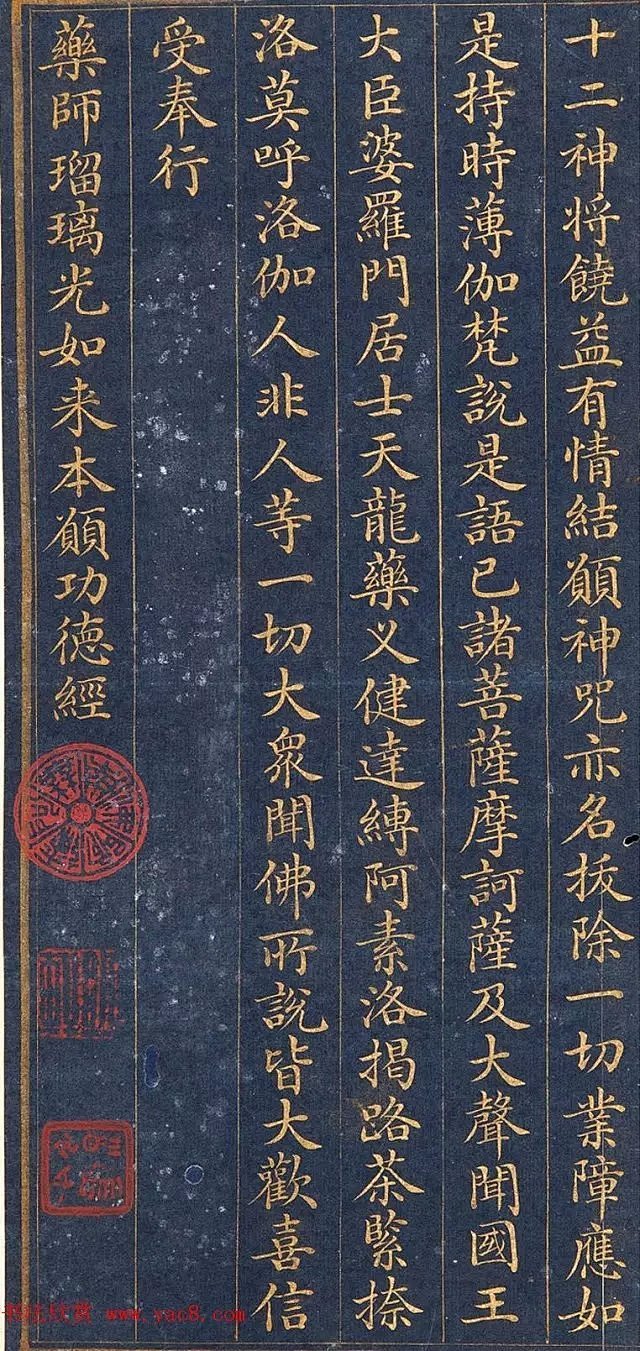 十二神将饒益有情結願神咒亦名拔除一切業障應如
是持時薄伽梵說是語已諸菩薩摩訶薩及大聲聞國王
大臣婆羅門居士天龍藥义健達縛阿素洛揭路茶緊捺
洛莫呼洛伽人非人等一切大眾聞佛所說皆大歡喜信
受奉行
藥師瑠璃光如来本願功德經
www.yac8.com